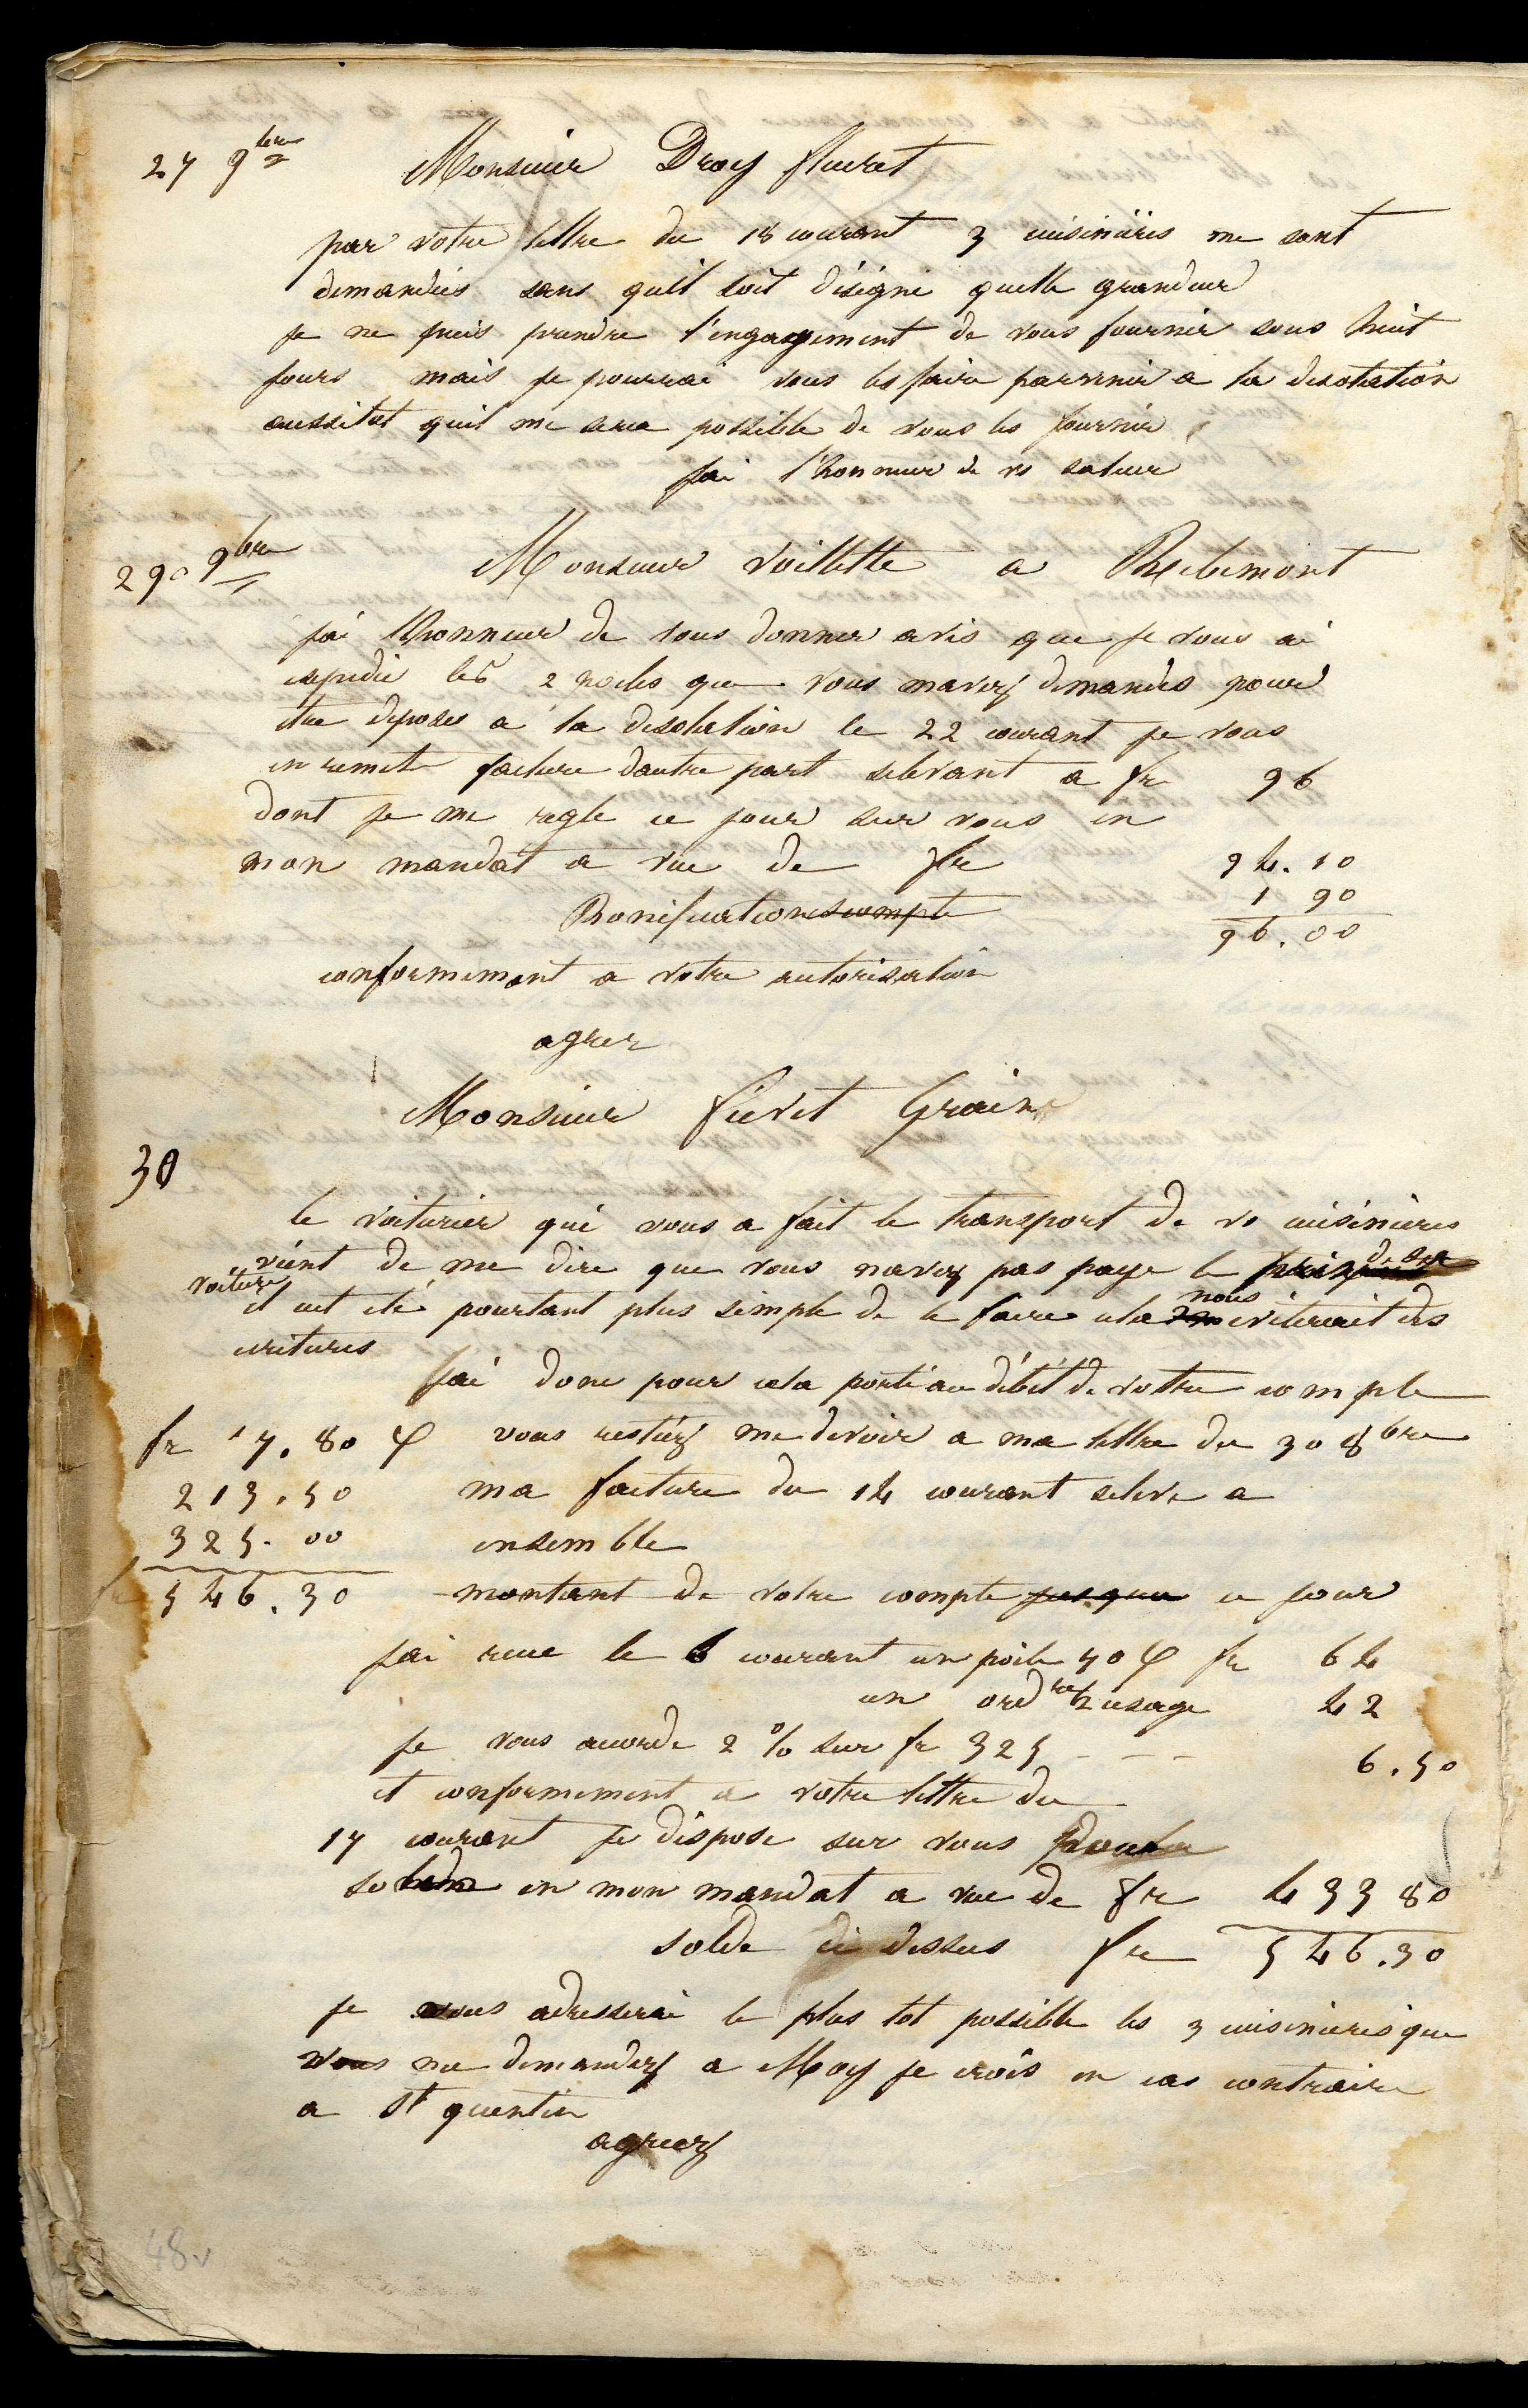 27 9bre Monsieur Droy fleurat
par votre lettre du 18 courant 3 cuisinières me sont
demandées sans quil soit désigné quelle grandeur
je ne puis prendre l'engagement de vous fournir sous huit
jours mais je pourrai vous les faire parvenir a la desolation
aussitot quil me sera possible de vous les fournir
jai l'honneur de vs saluer
29 9bre Monsieur Voillette a Ribemont
jai lhonneur de vous donner avis que je vous ai
expedié les 2 poeles que vous mavez demandés pour
etre deposés a la desolation le 22 courant je vous
en remet facture dautre part selevant a fr 96
dont je me regle ce jour sur vous en
mon mandat a vue de fr 94.10
Bonification escompte 1 90
96.00
conformement a votre autorisation
agreez
Monsieur fievet Grain
30
le voiturier qui vous a fait le transport de vs cuisinieres
vient de me dire que vous navez pas payé le prix de sa
voiture il eut été pourtant plus simple de le faire cela nous eviterait des
ecritures
Jai donc pour cela porté au débit de votre compte
fr 7.80 vous restiez me devoir a ma lettre du 30 8bre
213.50 ma facture du 14 courant seleve a
325.00 ensemble
fr 546.30 montant de votre compte jusqua ce jour
jai recu le 6 courant un poile fr 64
un usage 42
je vous accorde 2 % sur fr 325 - - - 6.50
et conformement a votre lettre du
17 courant je dispose sur vous
en mon mandat a vue de fr 433 80
solde ci dessus fr 546.30
je vous adresserai le plus tot possible les 3 cuisinieres que
vous me demandez a Moy je crois en cas contraire
a St quentin
agreez
48.v